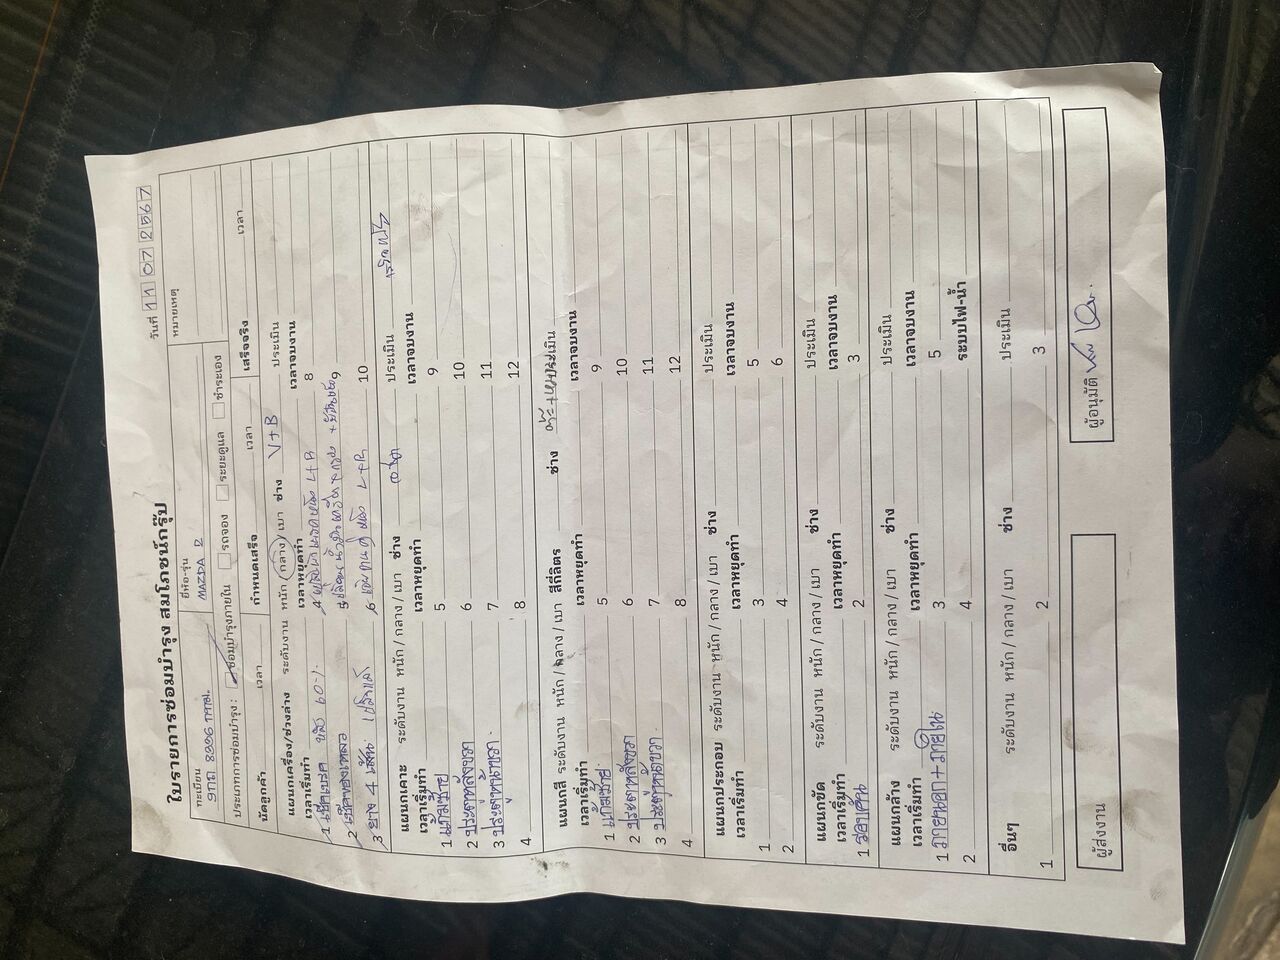 ใบรายการซ่อมบำรุง สมโภชน์กรุ๊ป
วันที่ 11 07 2567
ทะเบียน 9กถ 8806 กทม. ยี่ห้อ-รุ่น MAZDA 2 หมายเหตุ
ประเภทการซ่อมบำรุง : ซ่อมบำรุงภายใน รถจอง ระยะดูแล ชำระเอง
นัดลูกค้า เวลา กำหนดเสร็จ เวลา เสร็จจริง เวลา
แผนกเครื่อง/ช่วงล่าง ระดับงาน หนัก / กลาง / เบา ช่าง V+B ประเมิน
เวลาเริ่มทำ เวลาหยุดทำ เวลาจบงาน
1 เช็คเบรค หลัง 60% 4 L+R 8
2 เช็คของเหลว 5 9
3 ยาง 4 เส้น 6 L+R 10
แผนกเคาะ ระดับงาน หนัก / กลาง / เบา ช่าง ประเมิน
เวลาเริ่มทำ เวลาหยุดทำ เวลาจบงาน
1 แก้มซ้าย 5 9
2 ประตูหลังขวา 6 10
3 ประตูหน้าขวา 7 11
4 8 12
แผนกสี ระดับงาน หนัก / กลาง / เบา สีกี่ลิตร ช่าง ประเมิน
เวลาเริ่มทำ เวลาหยุดทำ เวลาจบงาน
1 แก้มซ้าย 5 9
2 ประตูหลังขวา 6 10
3 ประตูหน้าขวา 7 11
4 8 12
แผนกประกอบ ระดับงาน หนัก / กลาง / เบา ช่าง ประเมิน
เวลาเริ่มทำ เวลาหยุดทำ เวลาจบงาน
1 3 5
2 4 6
แผนกขัด ระดับงาน หนัก / กลาง / เบา ช่าง ประเมิน
เวลาเริ่มทำ เวลาหยุดทำ เวลาจบงาน
1 รอบคัน 2 3
แผนกล้าง ระดับงาน หนัก / กลาง / เบา ช่าง ประเมิน
เวลาเริ่มทำ เวลาหยุดทำ เวลาจบงาน
1 ภายนอก+ภายใน 3 5
2 4 ระบบไฟ-น้ำ
อื่นๆ ระดับงาน หนัก / กลาง / เบา ช่าง ประเมิน
1 2 3
ผู้ส่งงาน ผู้อนุมัติ